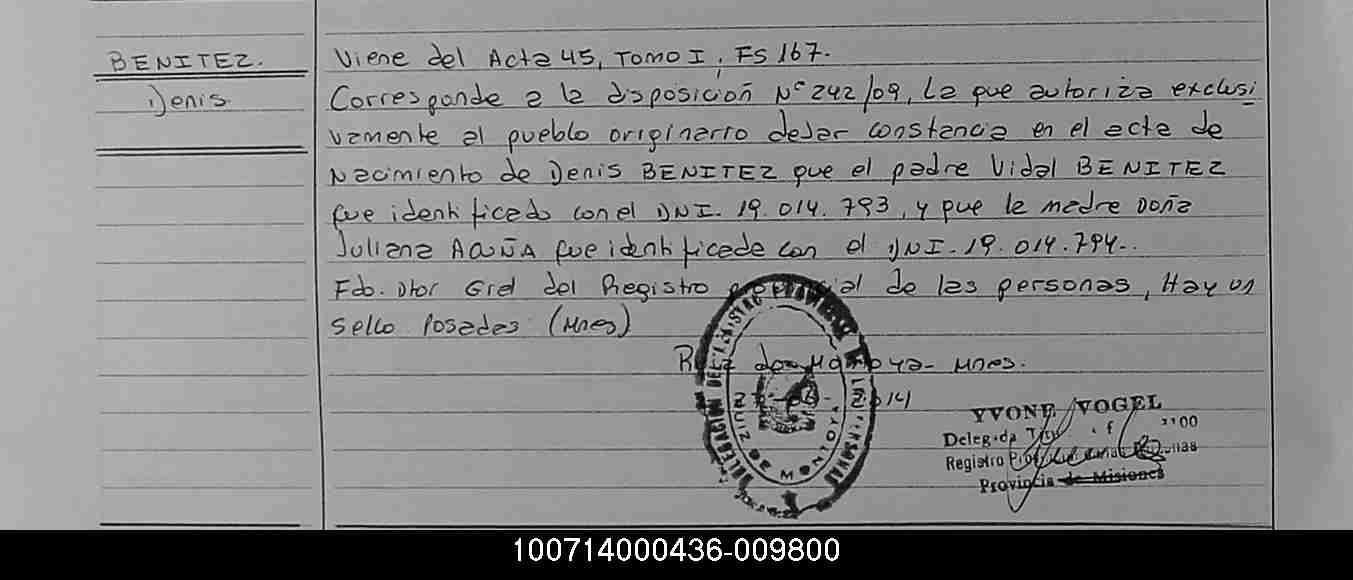 BENITEZ.
Denis
Viene del Acta 45, Tomo I, FS 167.
Corresponde a la disposición Nº 242/09, La que autoriza exclusi
vamente al pueblo originario dejar constancia en el acta de
Nacimiento de Denis BENITEZ que el padre Vidal BENITEZ
fue identificado con el DNI. 19.014.793, y que la madre Doña
Juliana ACUÑA fue identificada con el DNI-19.014.794..
Fdo. Dtor Gral del Registro provincial de las personas, Hay un
sello Posadas (Mnes)
Ruiz de Montoya- Mnes.
2014
DELEGACION DEL REGISTRO PROVINCIAL DE LAS PERSONAS
RUIZ DE MONTOYA
YVONE VOGEL
Delegada
Registro
Provincia de Misiones
100714000436-009800